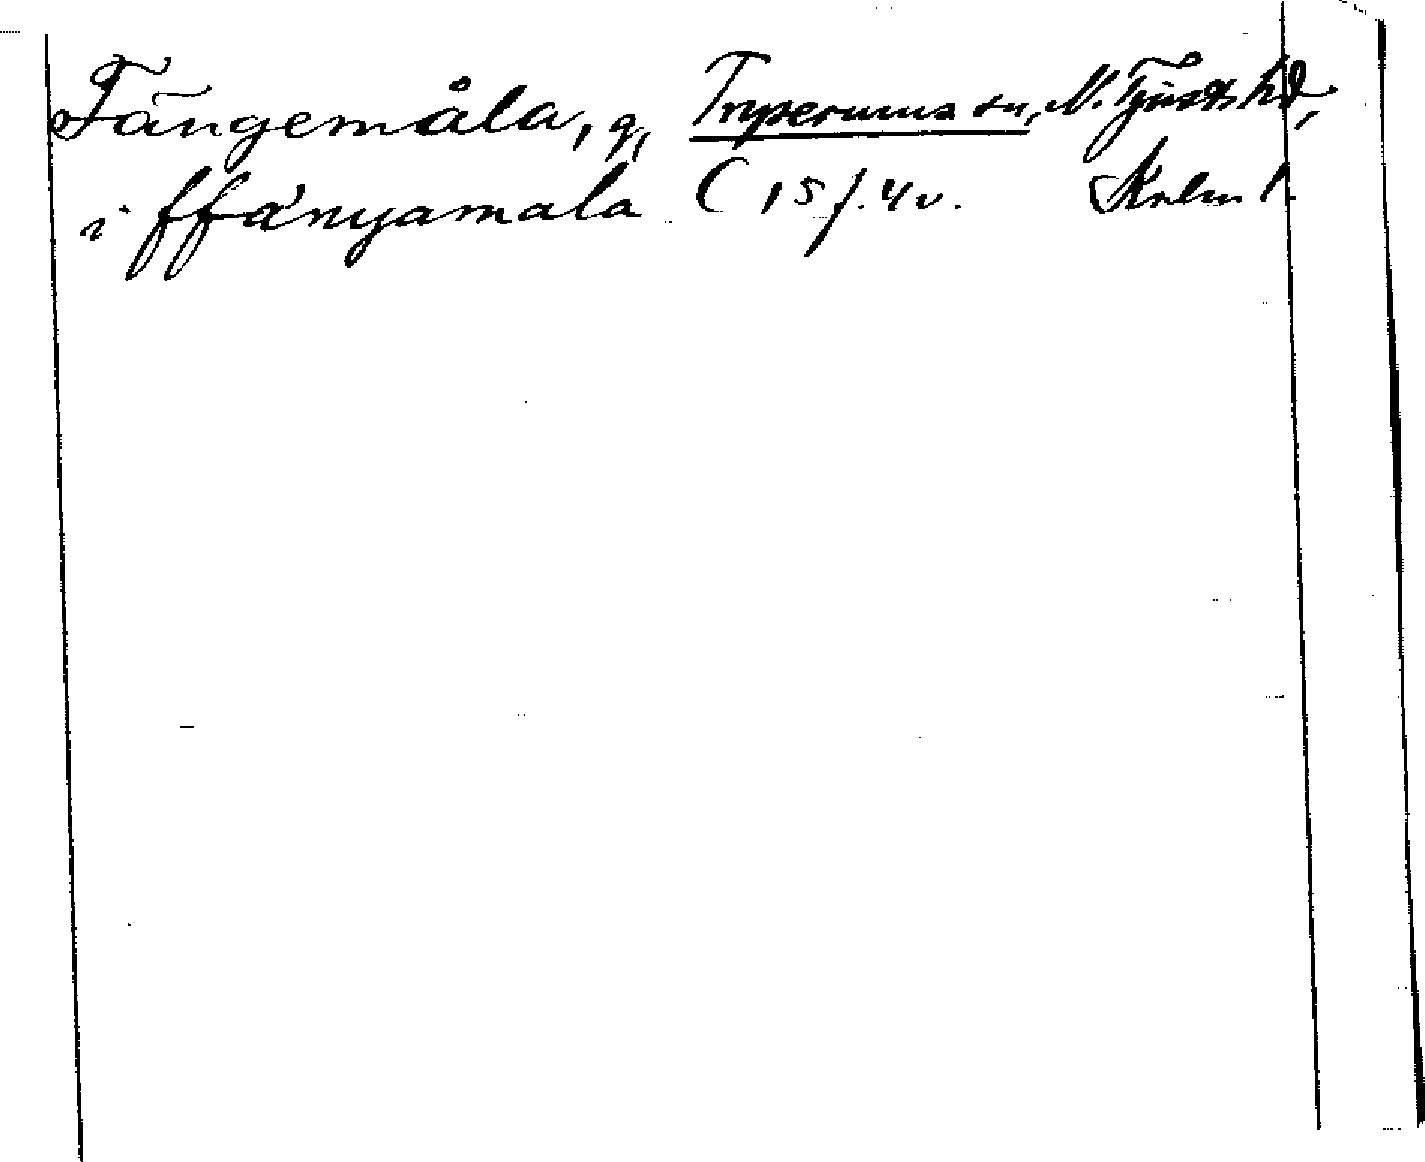 Fängemåla, g, Tryserums sn, N. Tjusts hd,
i ffänyamala C 15 f. 4 v. Kalm. l.